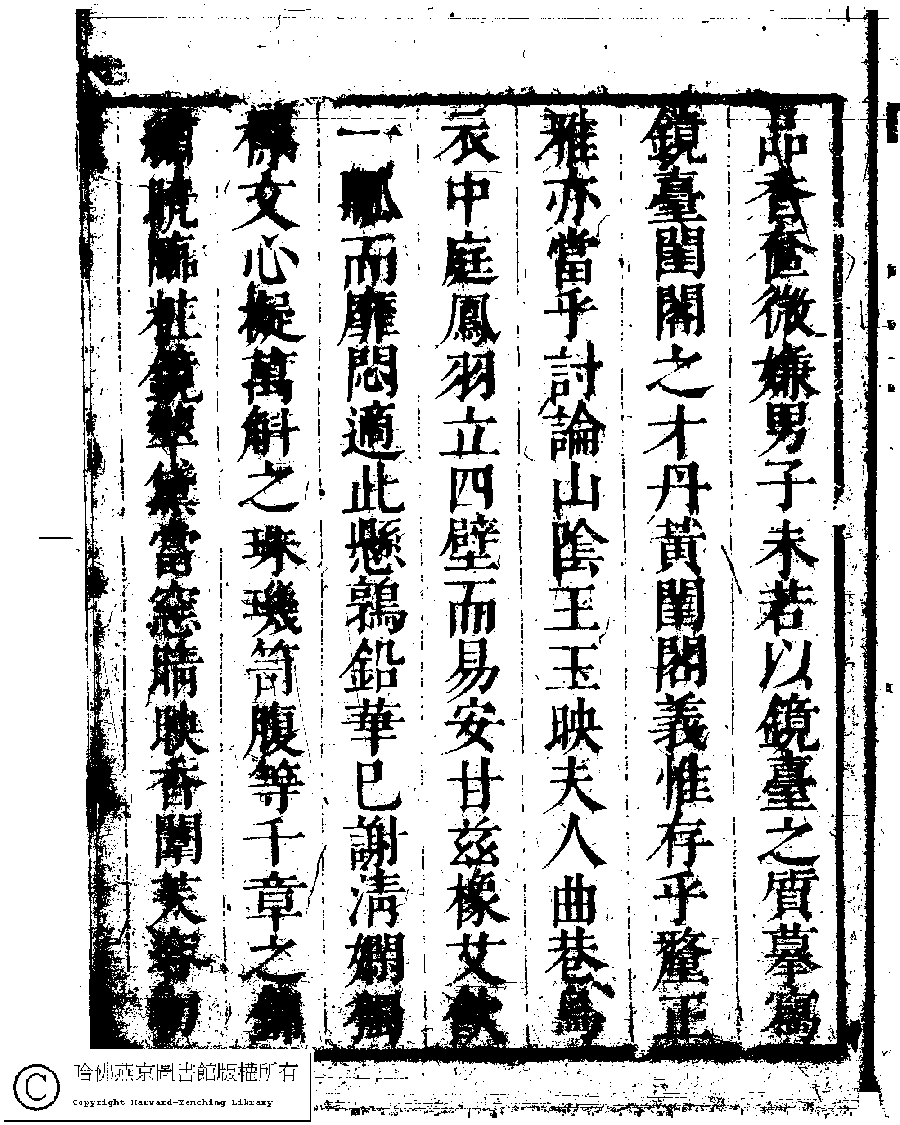 品香奩微嫌男子未若以鏡臺之質摹寫
鏡臺閨閣之才丹黃閨閣義惟存乎釐正
雅亦當乎討論山陰王玉映夫人曲巷爲
衣中庭鳳羽立四壁而易安甘茲橡艾飲
一瓢而靡悶適此懸鶉鉛華已謝淸嫻獨
文心擬萬斛之珠璣笥腹等千章之錦
脘臨粧鏡翠黛當窓晴映香閨芙蓉初
哈佛燕京圖書館版權所有
Copyright Harvard-Yenching Library